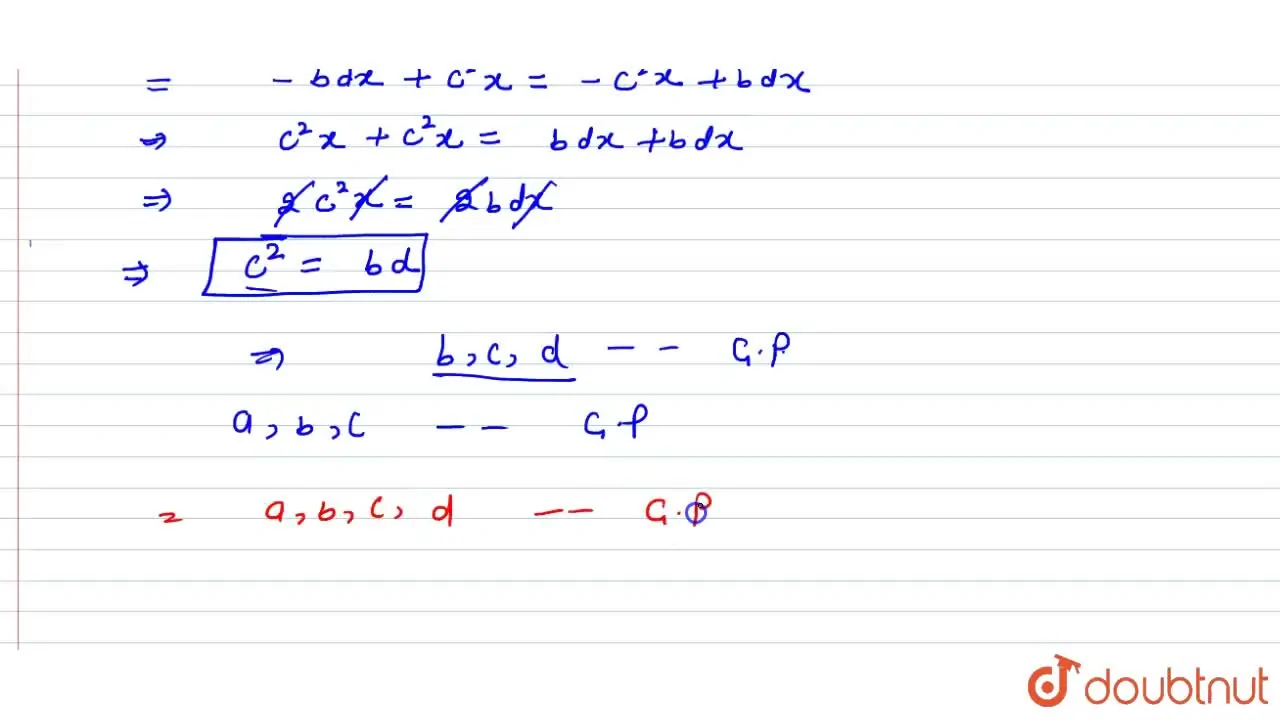 = - bdx + c²x = - c²x + bdx
⇒ c²x + c²x = bdx + bdx
⇒ 2c²x = 2bdx
⇒ c² = bd
⇒ b, c, d -- G.P
a, b, c -- G.P
= a, b, c, d -- G.P
doubtnut